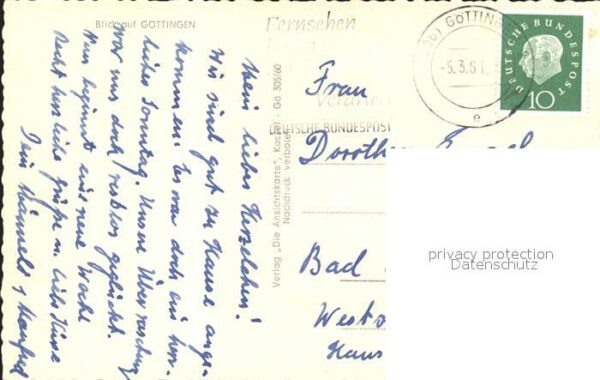 Blick auf GÖTTINGEN
Mein liebes Herzelchen!
Wir sind gut zu Hause ange-
kommen. Es war doch ein herr-
licher Sonntag. Unsere Überraschung
war uns doch restlos geglückt.
Nun beginnt eine neue Woche
Recht herzliche Grüße u. liebe Küsse
Dein & Manfred
Verlag „Die Ansichtskarte", Kassel - Gö 305/60
Nachdruck verboten
Fernsehen
DEUTSCHE BUNDESPOST
GÖTTINGEN
-5.3.61
e
DEUTSCHE BUNDESPOST
10
Frau
Bad
Haus
privacy protection
Datenschutz